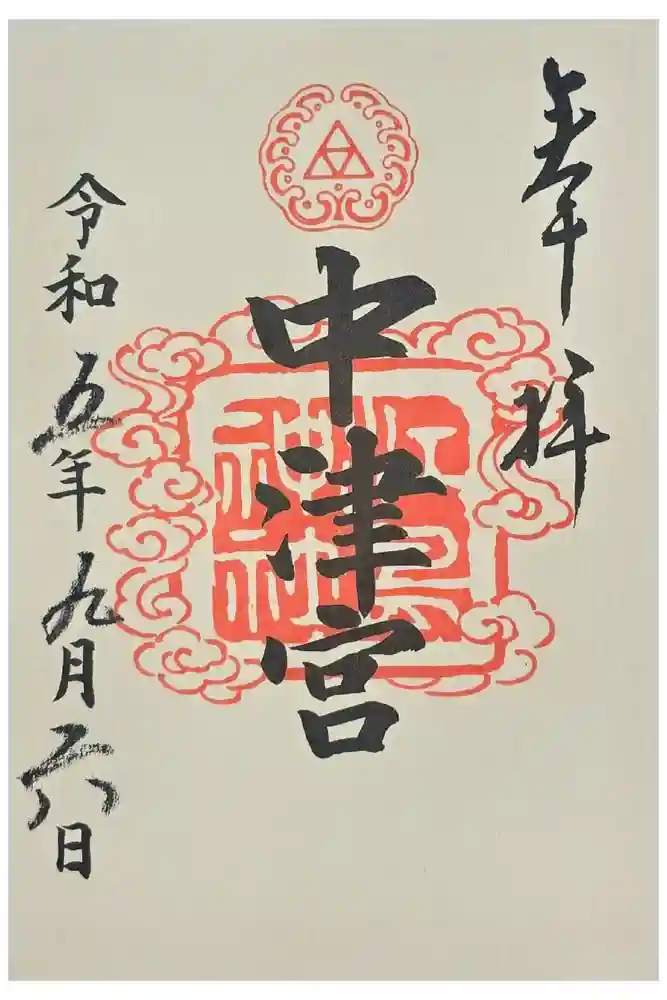 奉拝
中津宮
令和五年九月六日